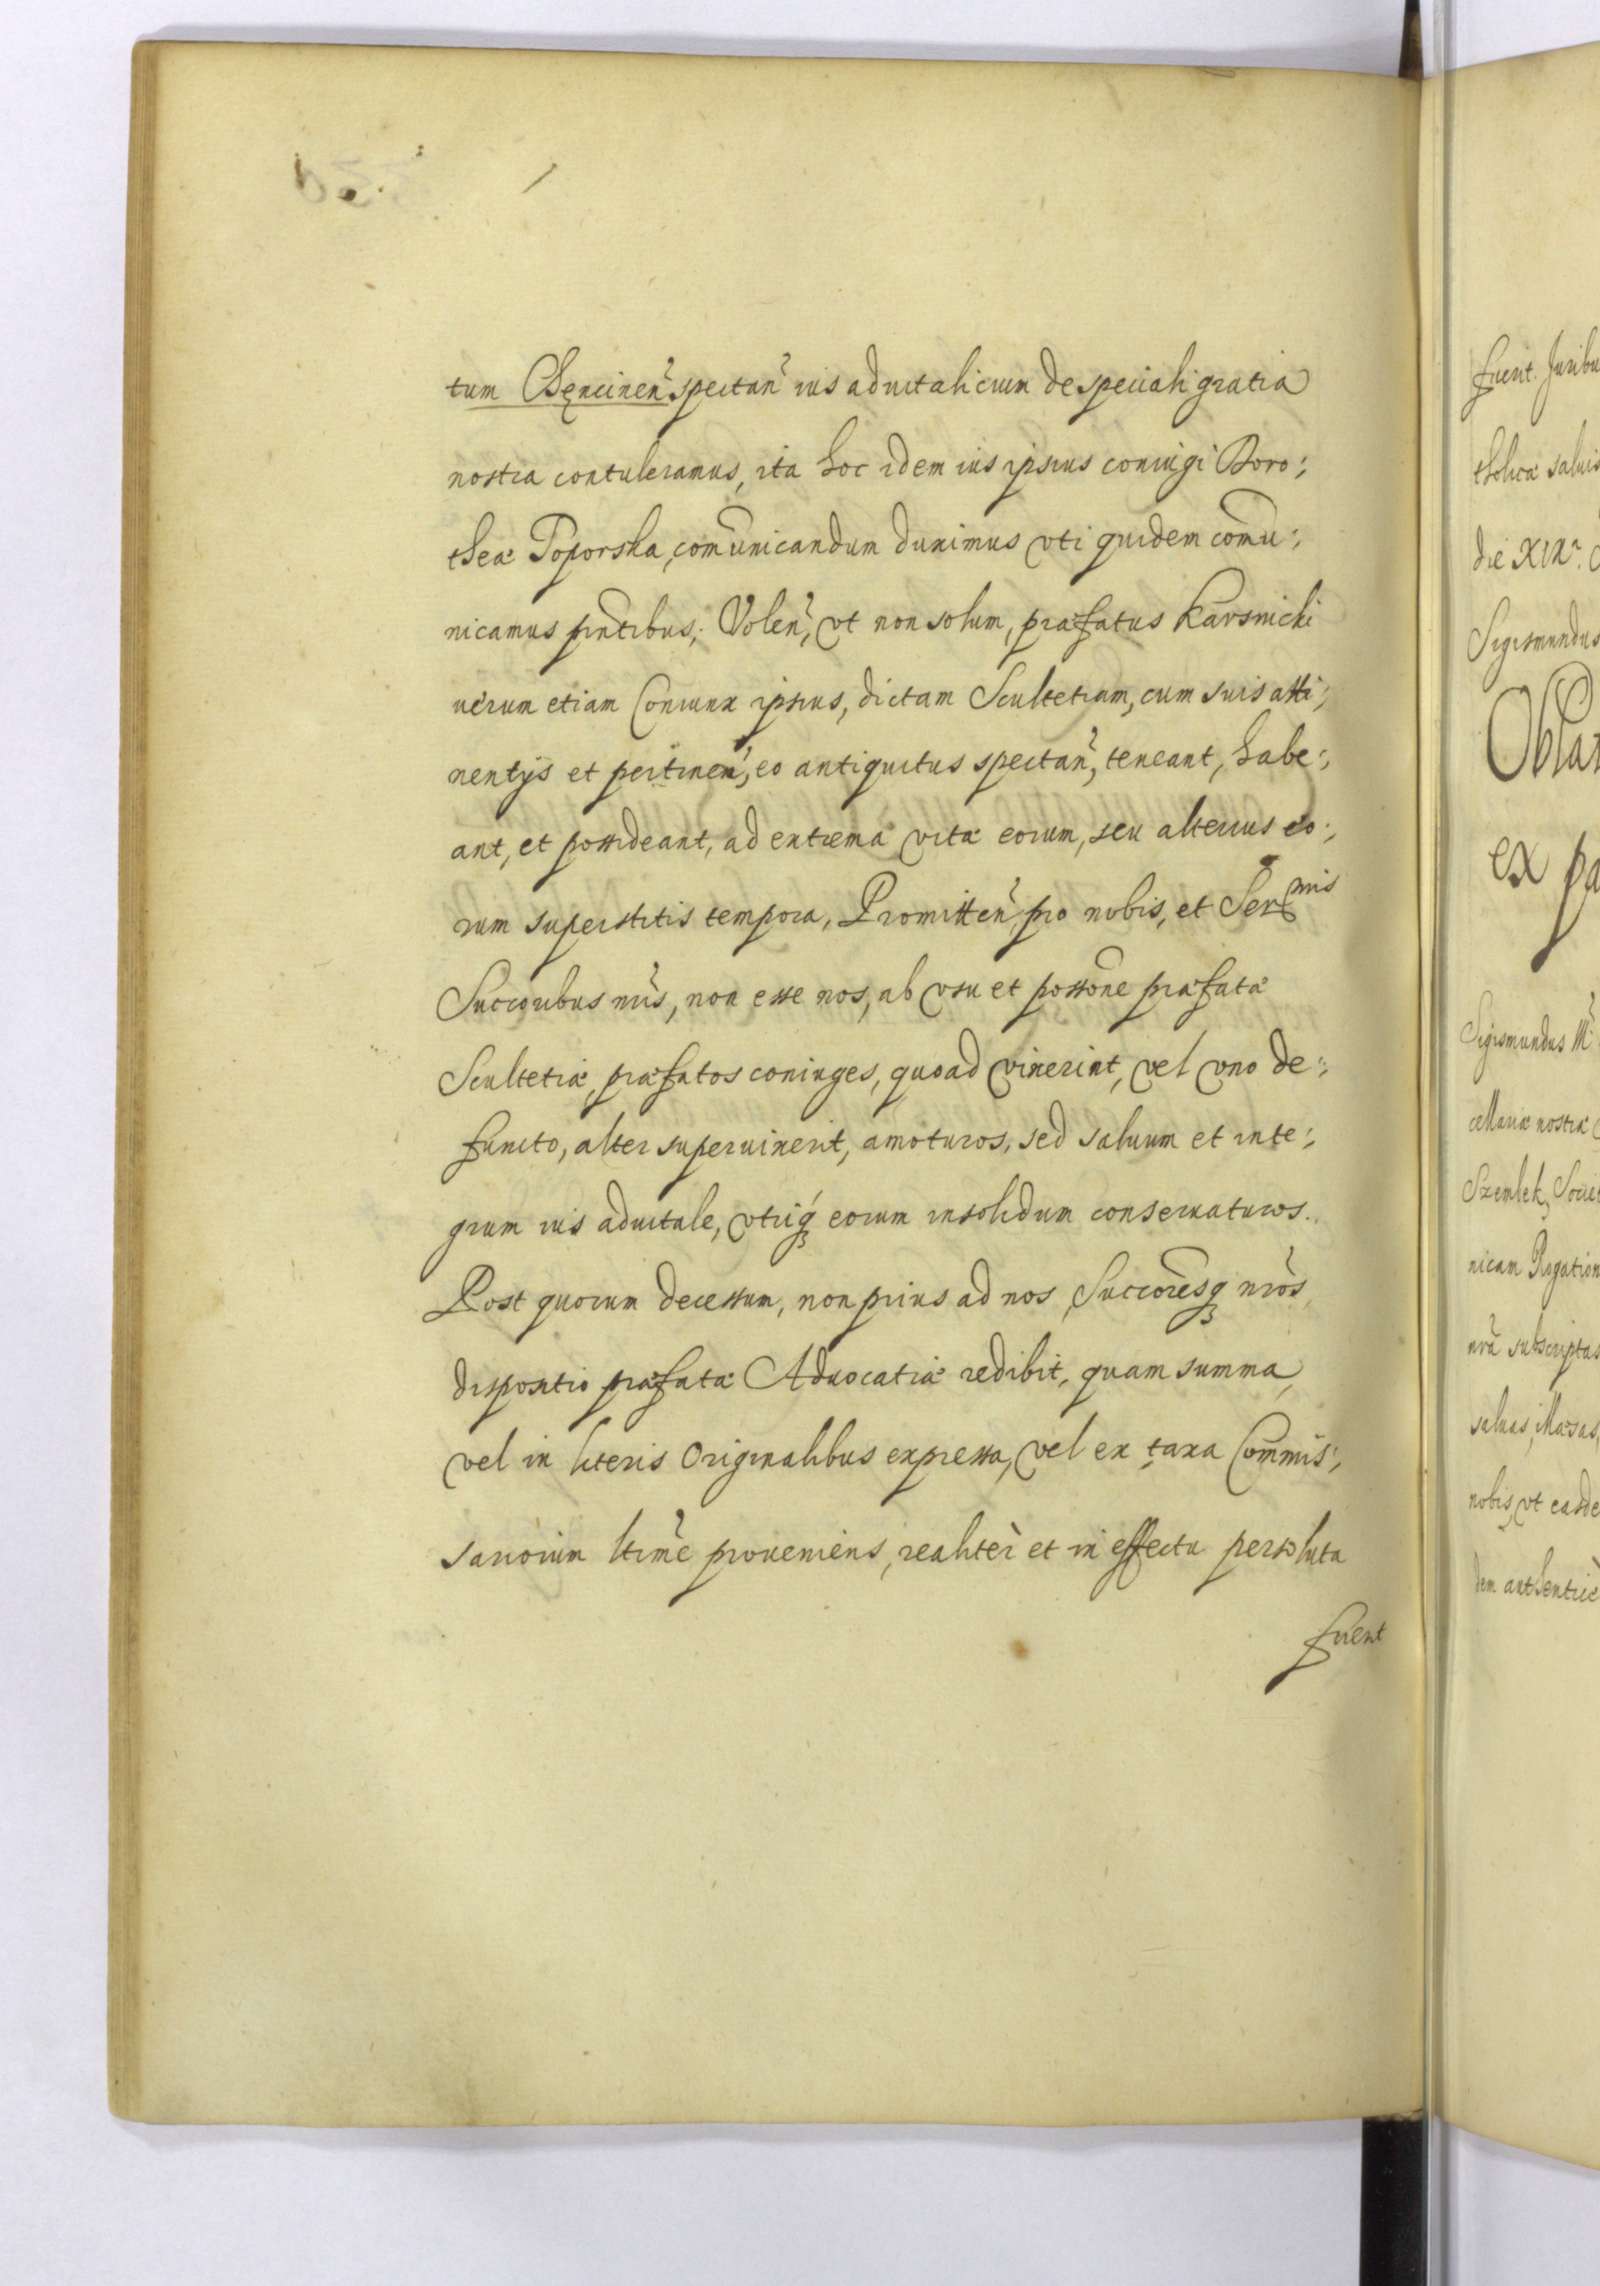 tum Chęncinen̄ spectan̄ ius aduitalicium de speciali gratia
nostra contuleramus, ita hoc idem ius ipsius coniugi Doro:,
theæ Poporska, com̄unicandum duximus vti quidem com̄u:,
nicamus pn̄tibus,: Volen̄, vt non solum, præfatus Karsnicki
uerum etiam Coniunx ipsius, dictam Scultetiam, cum suis atti:,
nentijs et pertinen̄, eo antiquitus spectan̄, teneant, habe:,
ant, et possideant, ad extrema vitæ eorum, seu alterius eo:,
rum superstitis tempora, Promitten̄ pro nobis, et Ser^mis
Succoribus nr̄is, non esse nos, ab vsu et possōne præfatæ
Scultetiæ, præfatos coniuges, quoad vixerint, vel vno de:,
functo, alter superuixerit, amoturos, sed saluum et inte:,
grum ius aduitale, vtriq́ꝫ eorum insolidum conseruaturos.
Post quorum decessum, non prius ad nos, Succoresqꝫ nr̄os,
dispositio præfatæ Aduocatiæ redibit, quam summa,
vel in literis Originalibus expressa, vel ex taxa Commis:,
sariorum ltim̄e proueniens, realitèr et in effectu persoluta
fuerit
fuerit. Juribu
tholicæ saluis
die XIX
Sigismundus
Oblat
ex pa
Sigismundus
cellariæ nostræ
Szembek, Societ
nicam Rogation
nr̄a subscriptas
saluas, illæsas,
nobis, vt easde
dem authenticè